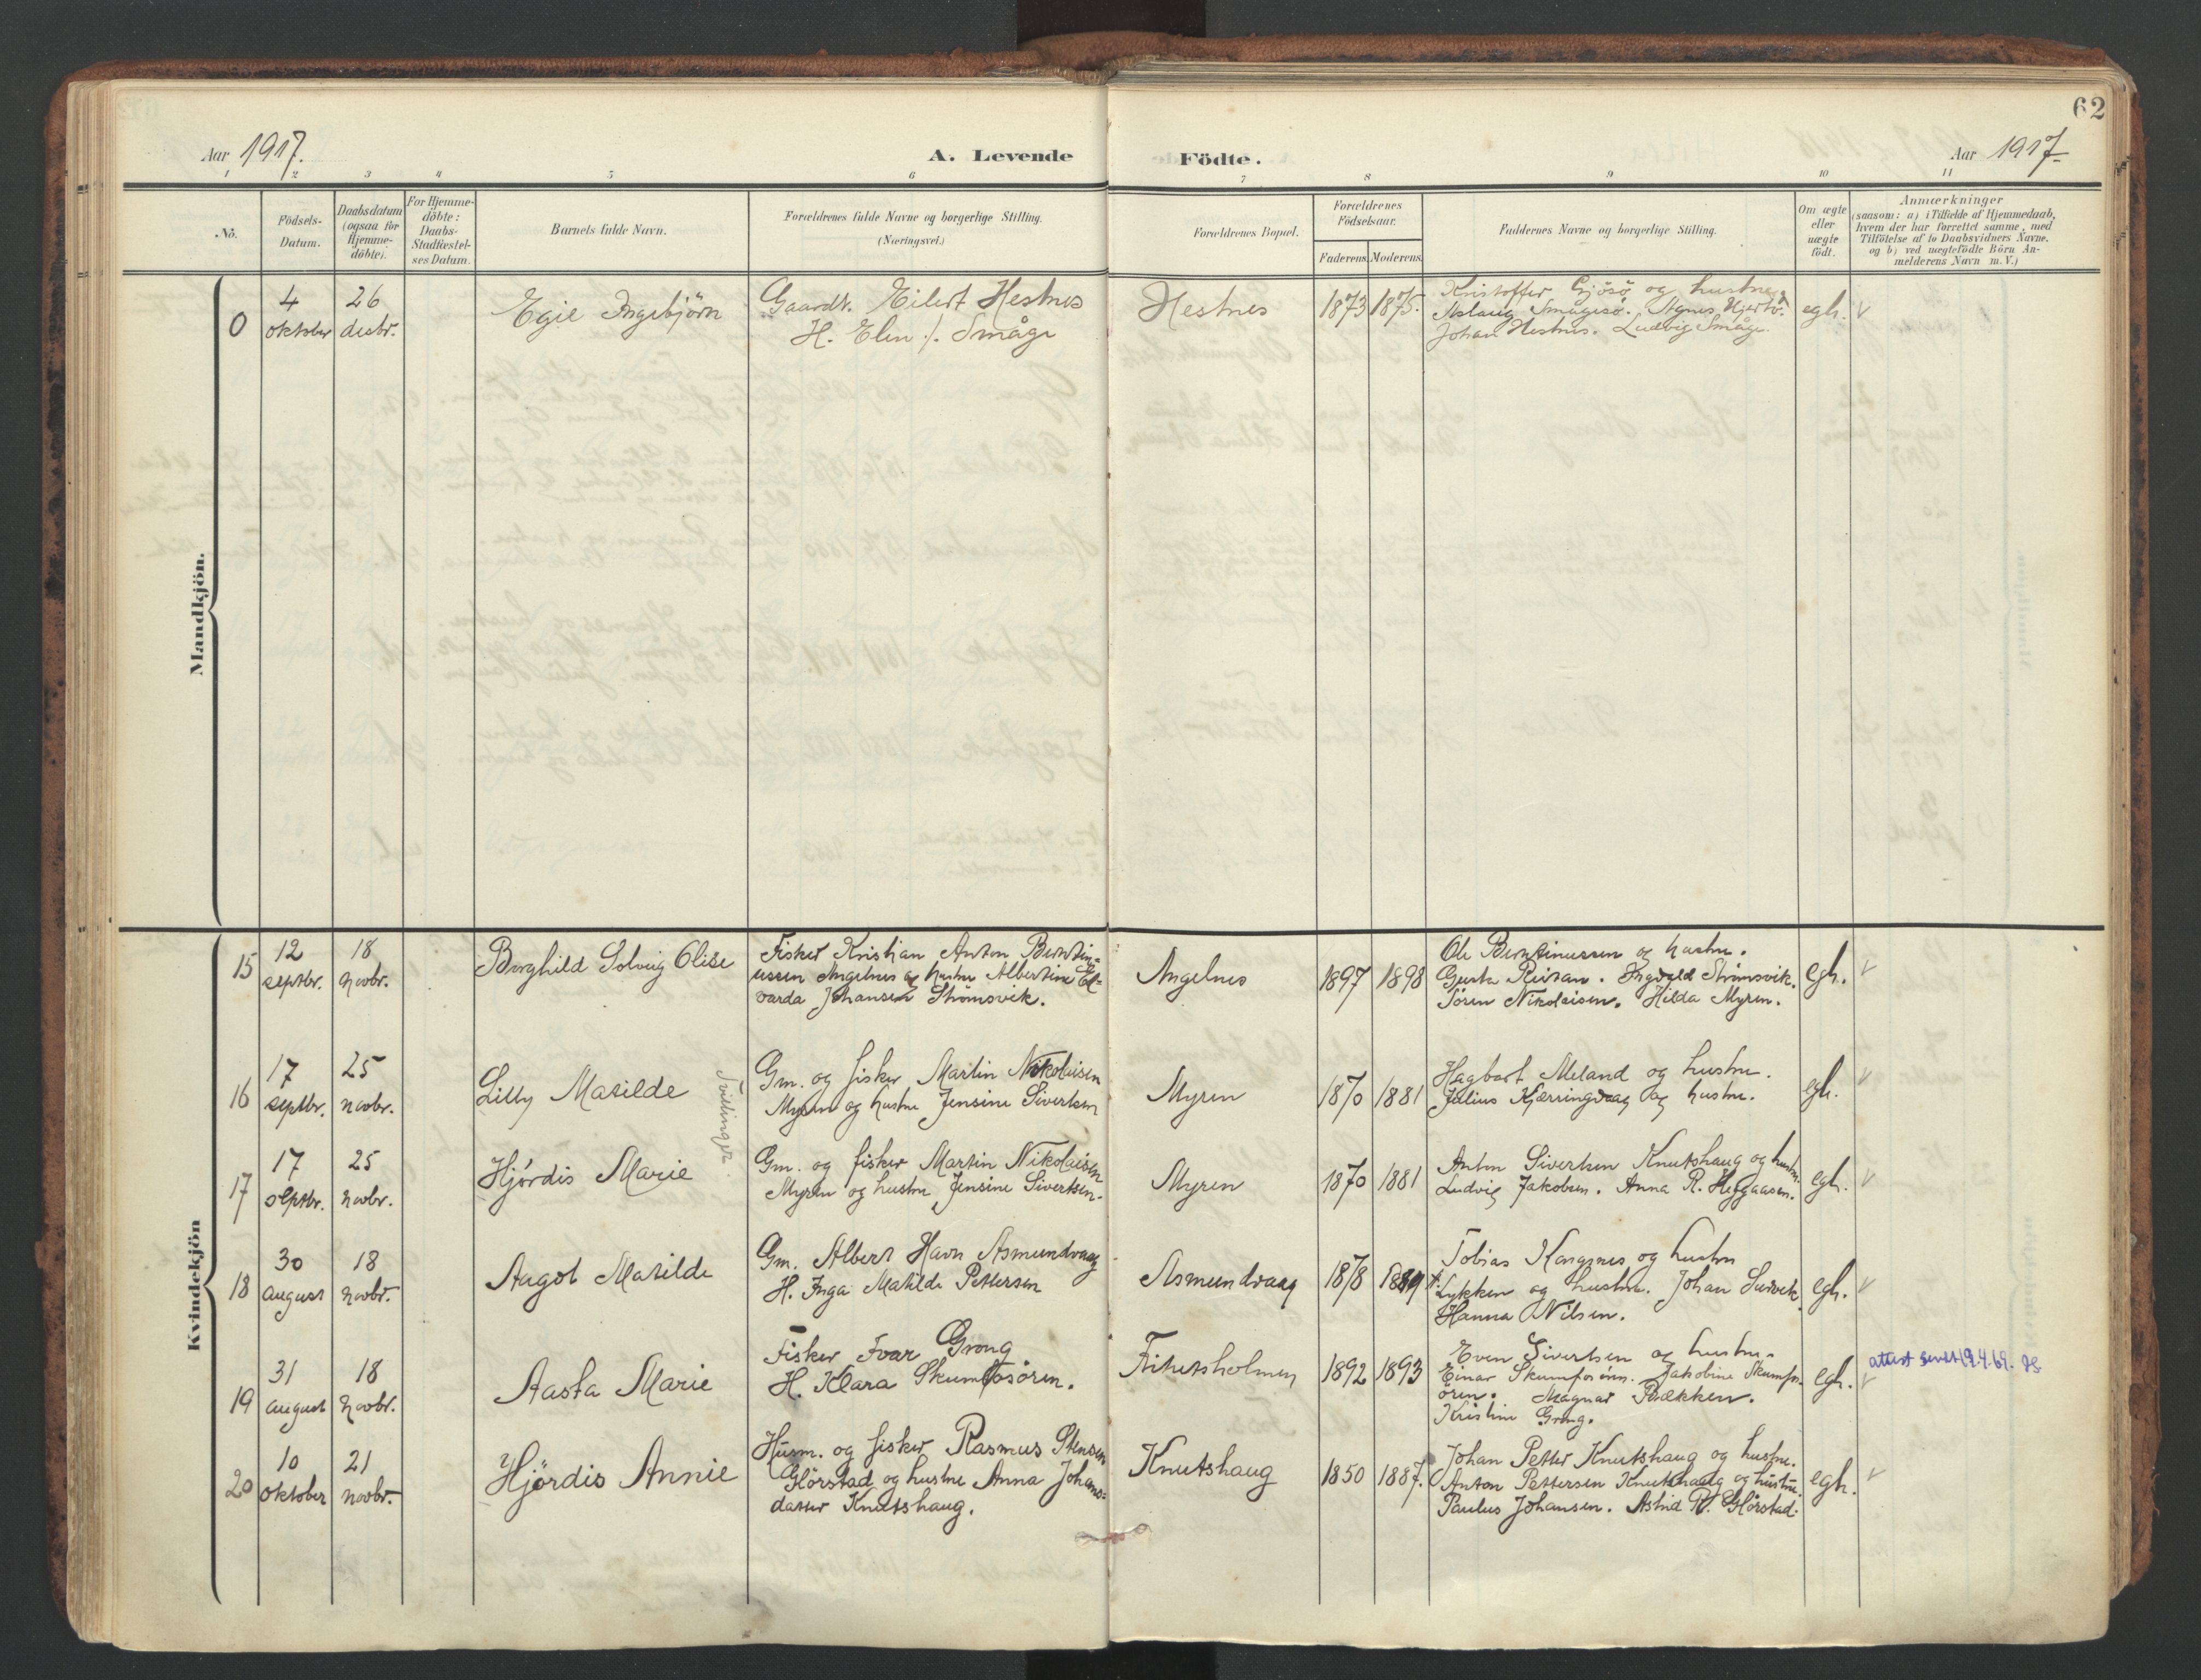 62
Aar 1917.
A. Levende Födte.
Aar 1917
1 2 3 4 5 6 7 8 9 10 11
No.
Födsels-
Datum.
Daabsdatum
(ogsaa for
Hjemme-
döbte).
For Hjemme-
döbte:
Daabs-
Stadfæstel-
ses Datum.
Barnets fulde Navn.
Forældrenes fulde Navne og borgerlige Stilling.
(Næringsvei.)
Forældrenes Bopæl.
Forældrenes
Födselsaar.
Faderens. Moderens.
Faddernes Navne og borgerlige Stilling.
Om ægte
eller
uægte
födt.
Anmærkninger
(saasom: a) i Tilfælde af Hjemmedaab,
hvem der har forrettet samme, med
Tilföielse af to Daabsvidners Navne,
og b) ved uægtefödte Börn An-
melderens Navn m. V.)
Mandkjön.
0
4
oktober
26
decbr.
Egil Ingebjörn
Gaardbr. Eilert Hestnes
H. Elen f. Småge
Hestnes
1873
1875.
Kristoffer Gjösö og hustru
Aslaug Smågesö. Agnes Hjertö.
Johan Hestnes. Ludvig Småge.
egh.
Kvindekjön
15
12
septbr.
18
novbr.
Borghild Solveig Olise
Fisker Kristian Anton Berntin-
ussen Angelnes og hustru Albertine Ed-
varda Johansen Strömsvik.
Angelnes
1897
1898
Ole Berntinussen og hustru.
Gusta Reitan. Ingvald Strömsvik.
Sören Nikolaisen. Hilda Myren.
egh.
16
17
septbr.
25
novbr.
Lilly Matilde
Tvillinger.
Gm. og fisker Martin Nikolaisen
Myren og hustru Jensine Sivertsen
Myren
1870
1881
Hagbart Meland og hustru.
Julius Kjærringvaag og hustru.
egh.
17
17
septbr.
25
novbr.
Hjördis Marie
Gm. og fisker Martin Nikolaisen
Myren og hustru Jensine Sivertsen.
Myren
1870
1881
Anton Sivertsen Knutshaug og hustru.
Ludvig Jakobsen. Anna R.
egh.
18
30
august
18
novbr.
Aagot Matilde
Gm. Albert Havn Asmundvaag
H. Inga Matilde Pettersen
Asmundvaag
1878
Tobias og hustru
Lykken og hustru. Johan
Hanna Nilsen.
egh.
19
31
august
18
novbr.
Aasta Marie
Fisker Ivar Grong
H. Klara Skumfosören.
Fikersholmen
1892
1893
Even Sivertsen og hustru.
Einar Jakobine Skumfos-
ören. Magnar Bækken.
Kristine Grong.
egh.
attest sendt 19.4.69.
20
10
oktober
21
novbr.
Hjördis Annie
Husm. og fisker Rasmus Stensen
Glörstad og hustru Anna Johans-
datter Knutshaug.
Knutshaug
1850
1887.
Johan Petter Knutshaug og hustru.
Anton Pettersen Knutshaug og hustru.
Paulus Johansen. Astrid R. Glörstad.
egh.